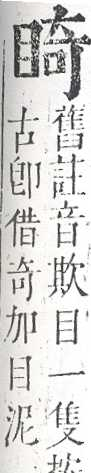 舊註音欺目一隻按
古卽借奇加目泥